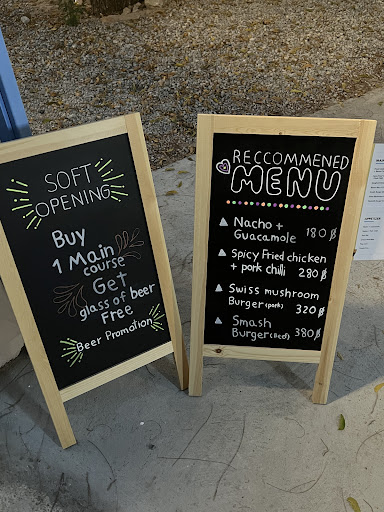 SOFT
OPENING
Buy
1 Main
course
Get
glass of beer
Free
Beer Promotion
RECCOMMENED
MENU
Nacho +
Guacamole 180฿
Spicy Fried chicken
+ pork chilli 280฿
Swiss mushroom
Burger (pork) 320฿
Smash
Burger (Beef) 380฿